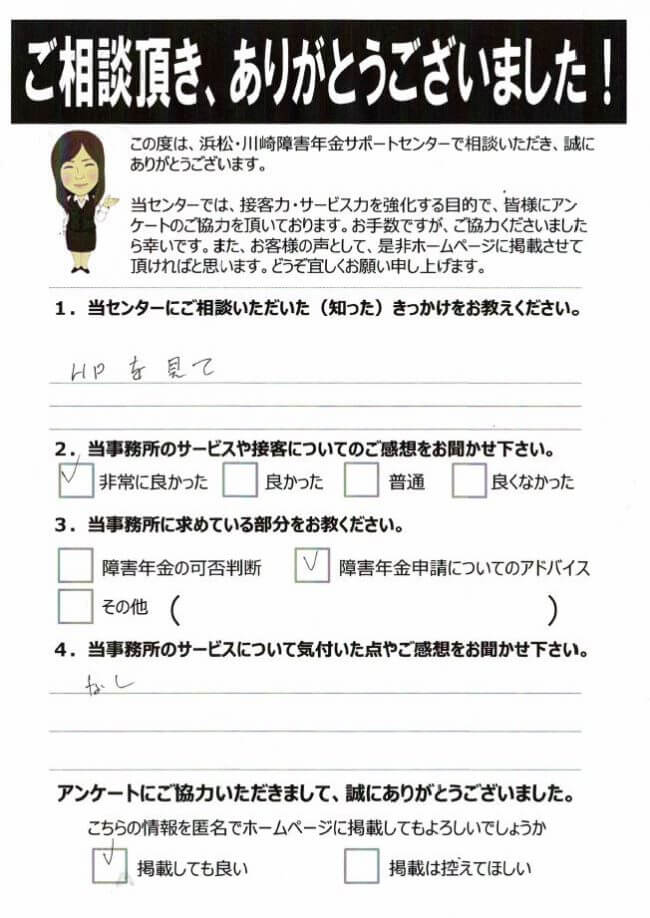 ご相談頂き、ありがとうございました！
この度は、浜松・川崎障害年金サポートセンターで相談いただき、誠に
ありがとうございます。
当センターでは、接客力・サービス力を強化する目的で、皆様にアン
ケートのご協力を頂いております。お手数ですが、ご協力くださいました
ら幸いです。また、お客様の声として、是非ホームページに掲載させて
頂ければと思います。どうぞ宜しくお願い申し上げます。
１．当センターにご相談いただいた（知った）きっかけをお教えください。
HPを見て
２．当事務所のサービスや接客についてのご感想をお聞かせ下さい。
非常に良かった 良かった 普通 良くなかった
３．当事務所に求めている部分をお教ください。
障害年金の可否判断 障害年金申請についてのアドバイス
その他 （ ）
４．当事務所のサービスについて気付いた点やご感想をお聞かせ下さい。
なし
アンケートにご協力いただきまして、誠にありがとうございました。
こちらの情報を匿名でホームページに掲載してもよろしいでしょうか
掲載しても良い 掲載は控えてほしい